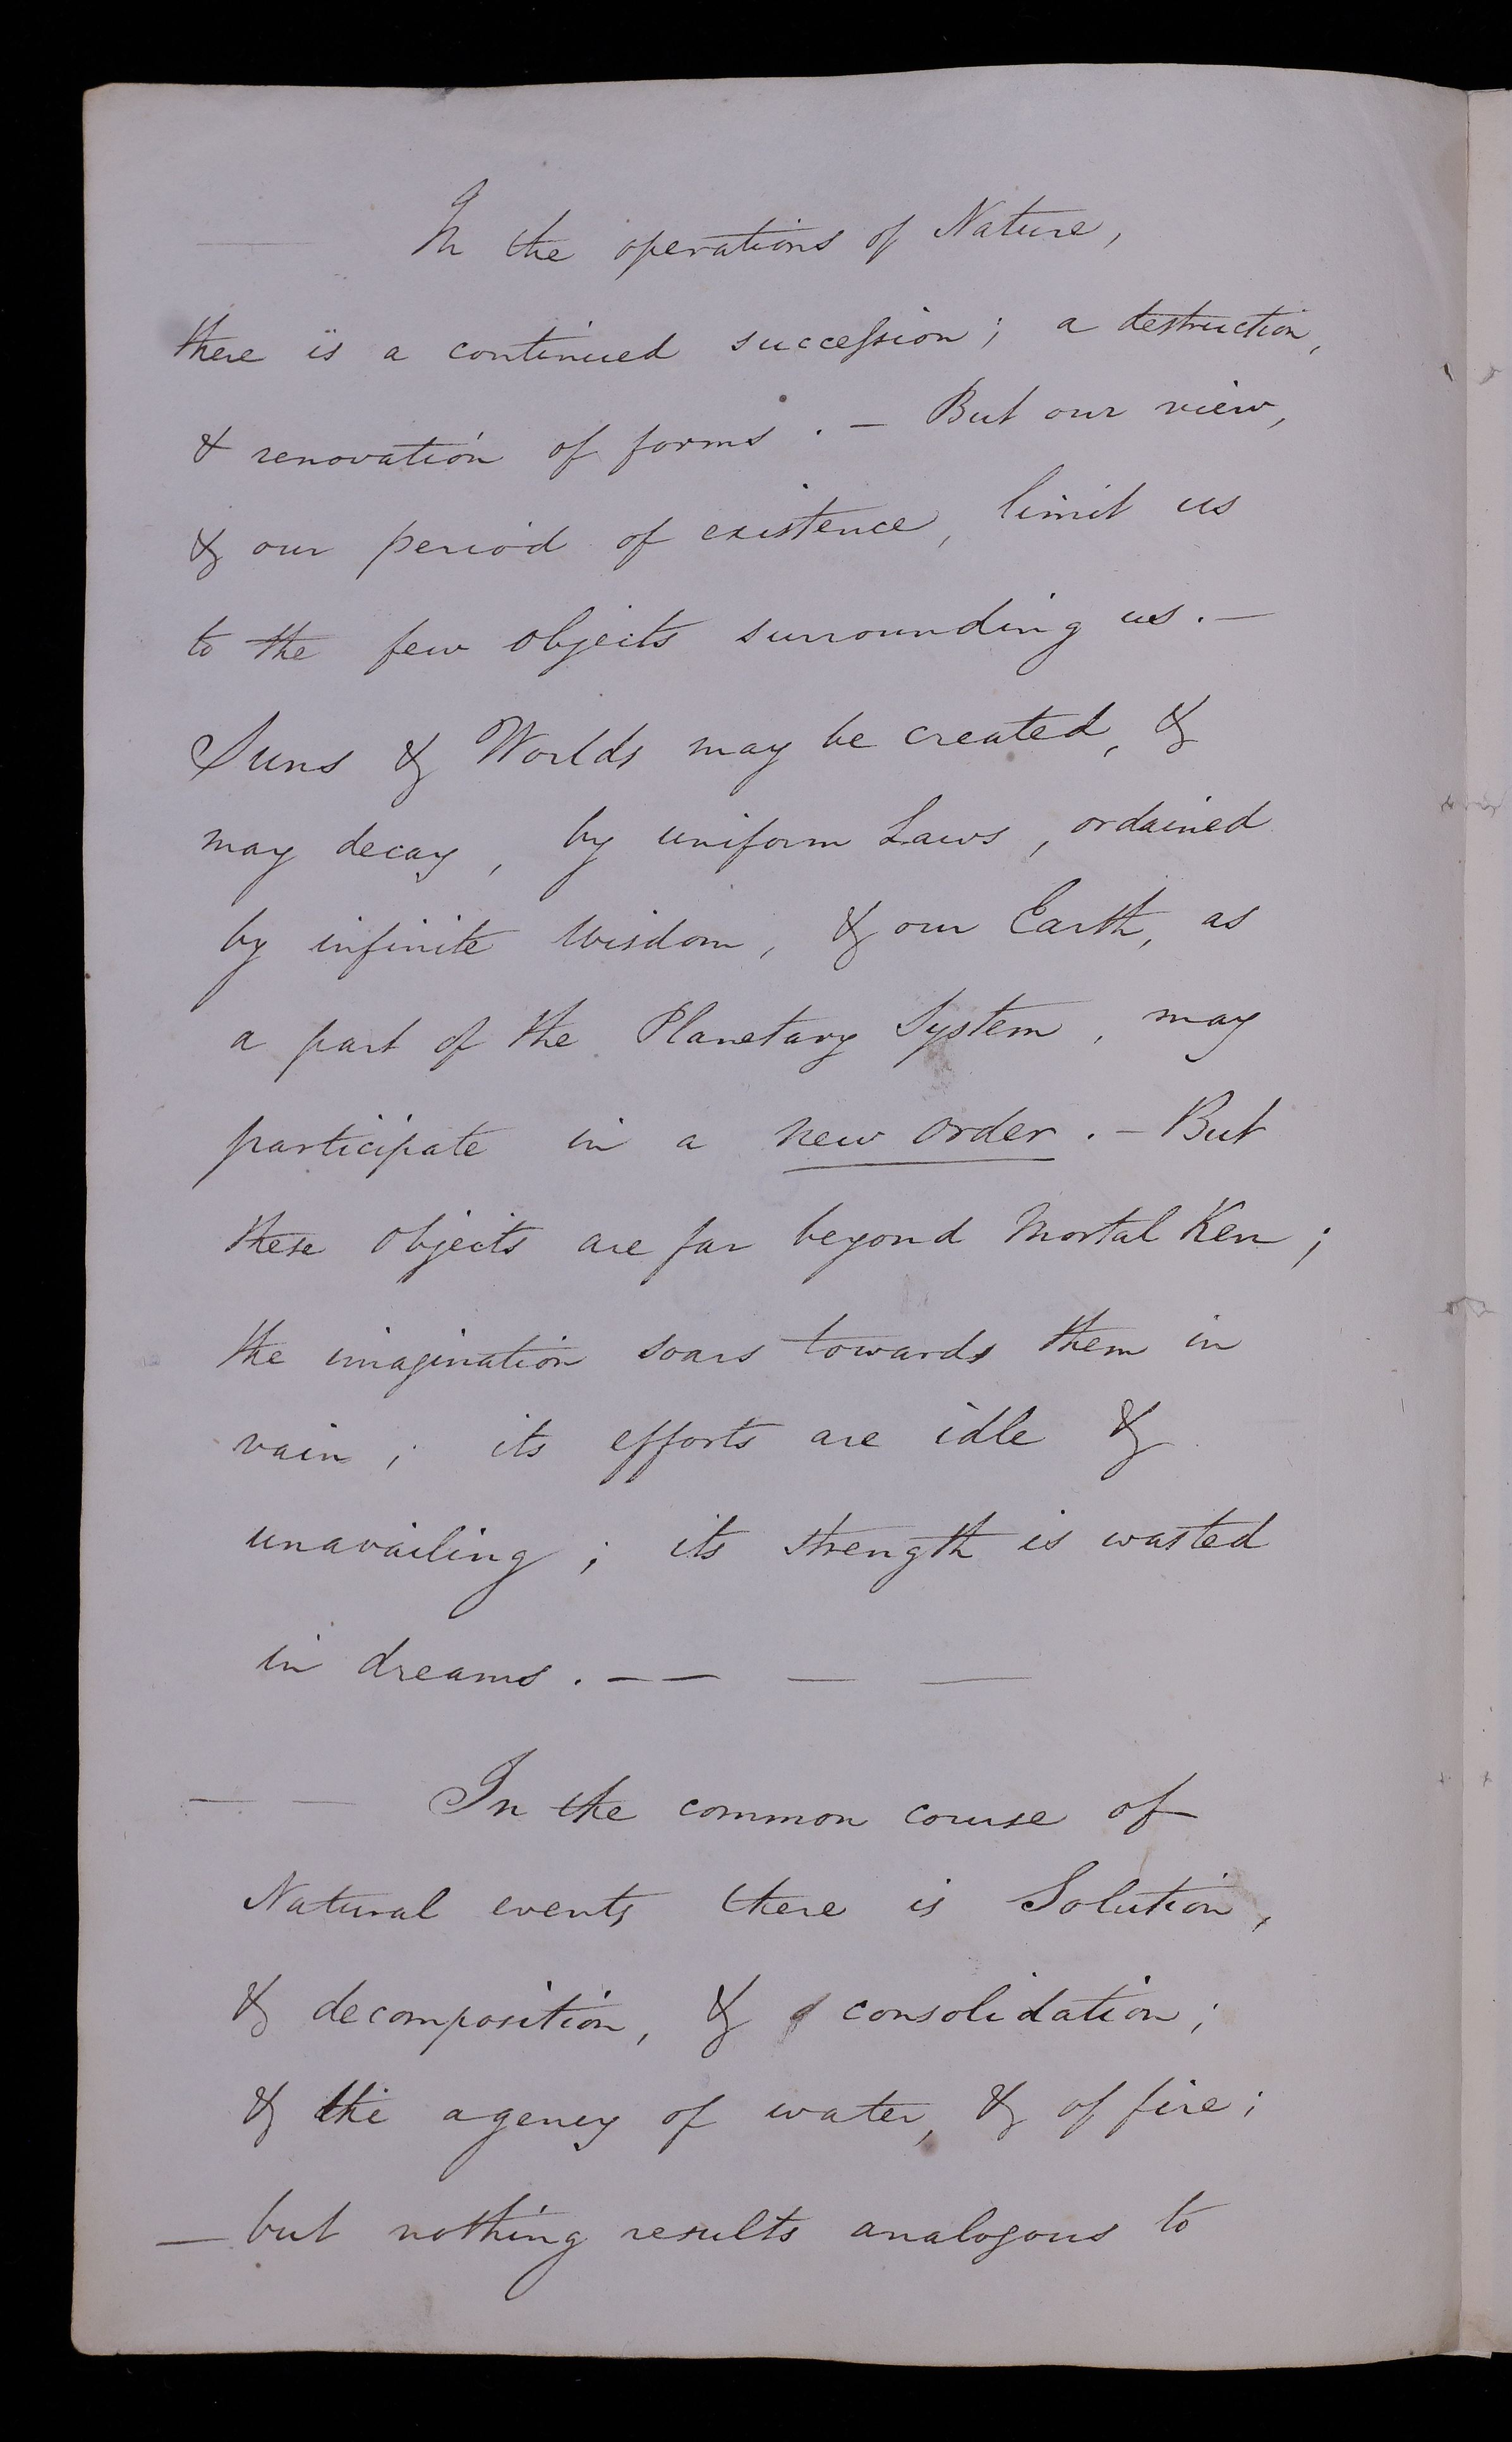 In the operations of Nature,
there is a continued succession; a destruction,
& renovation of forms. — But our view,
& our period of existence, limit us
to the few objects surrounding us. —
Suns & Worlds may be created, &
may decay, by uniform Laws, ordained
by infinite Wisdom, & our Earth, as
a part of the Planetary System, may
participate in a new order. — But
these objects are far beyond Mortal Ken;
the imagination soars towards them in
vain; its efforts are idle &
unavailing; its strength is wasted
in dreams. — — — —
— — In the common course of
Natural events there is Solution,
& decomposition, & consolidation;
& the agency of water, & of fire;
— but nothing results analogous to